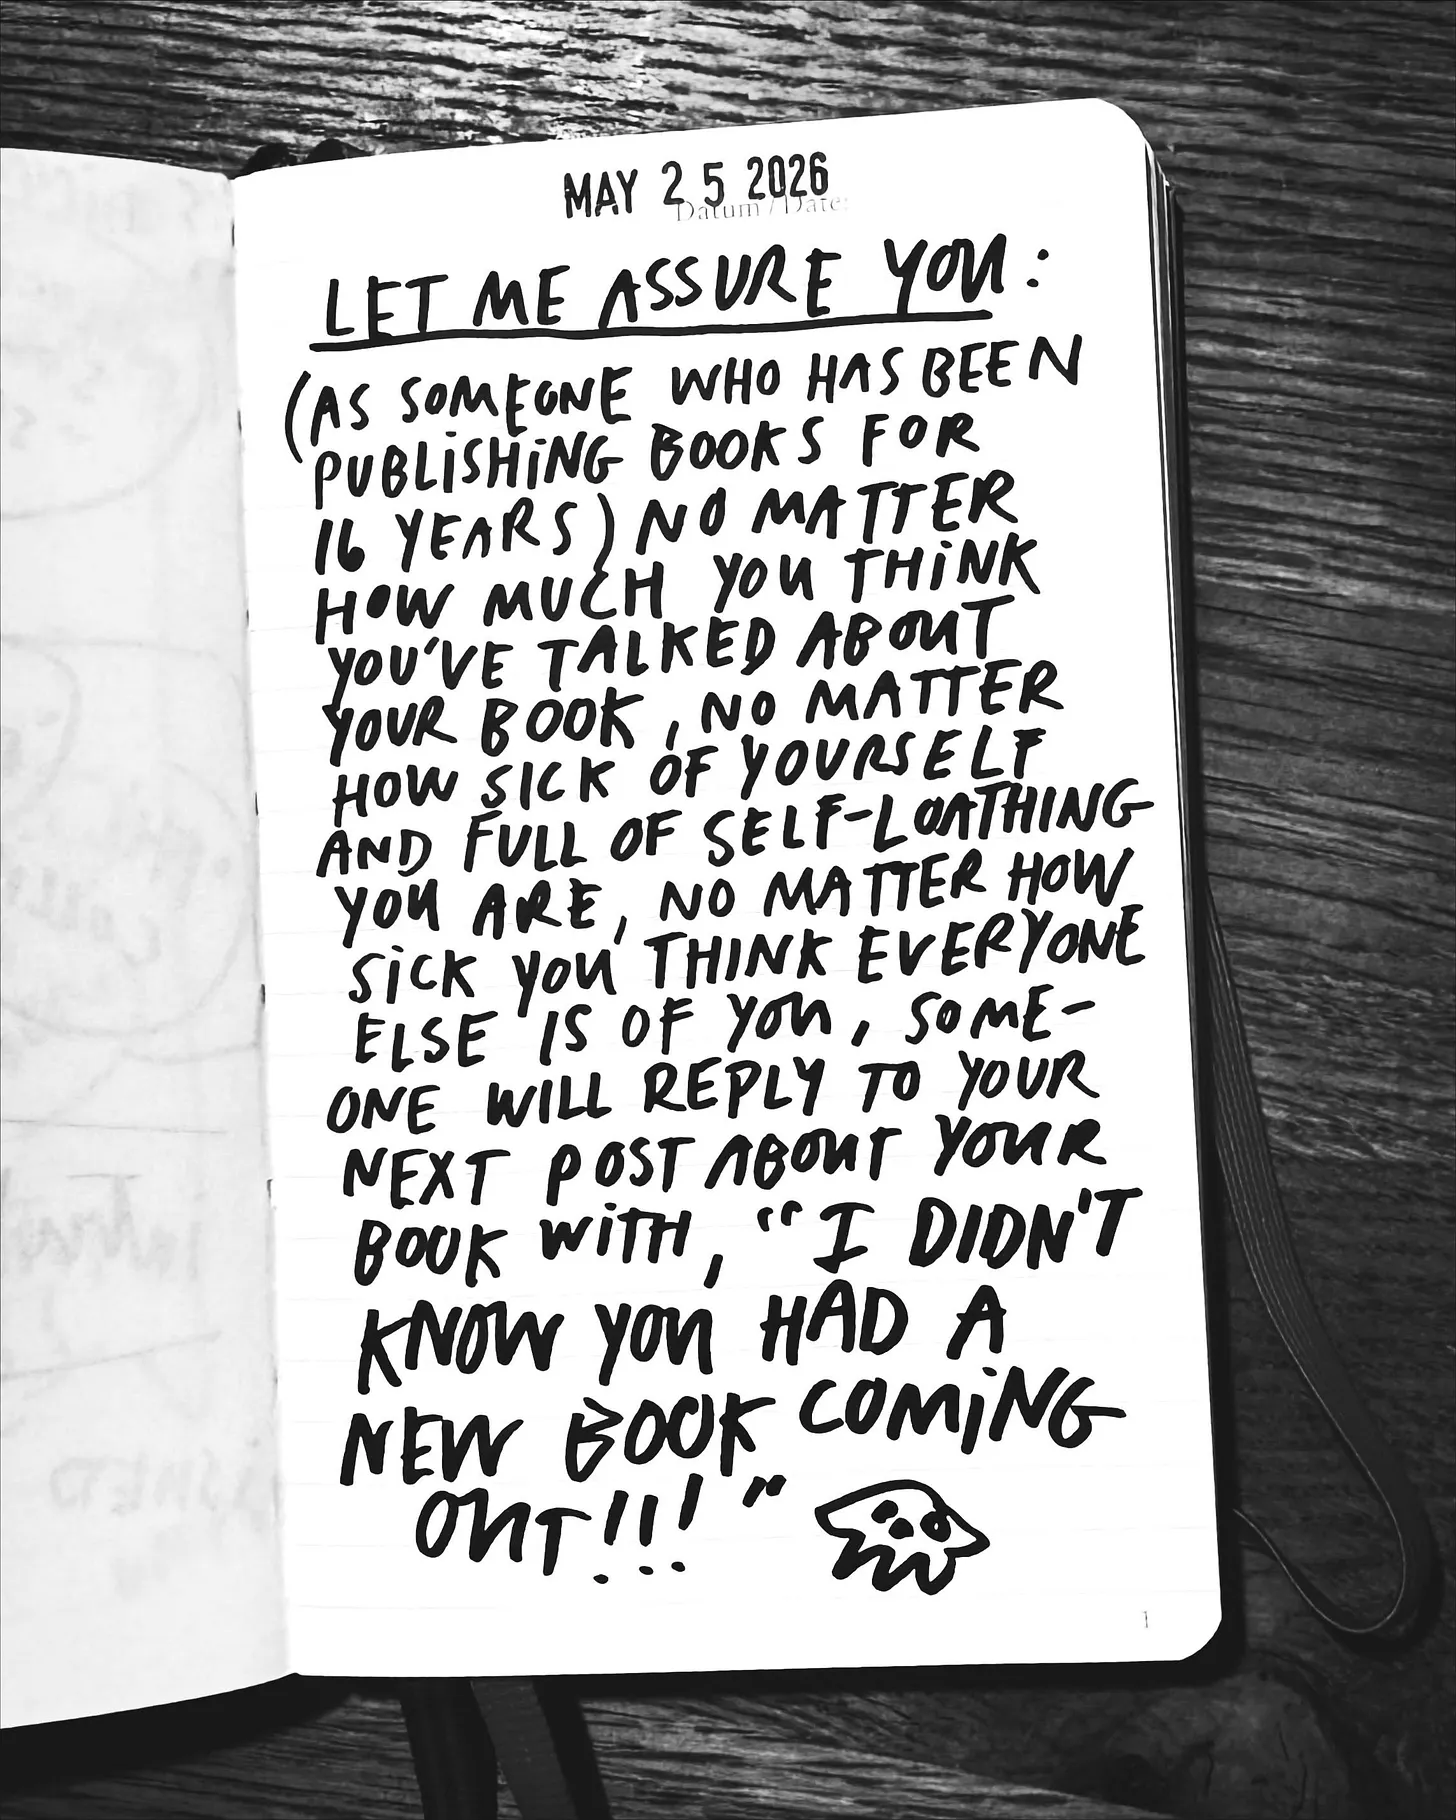 MAY 25 2026
Datum / Date:
LET ME ASSURE YOU:
(AS SOMEONE WHO HAS BEEN
PUBLISHING BOOKS FOR
16 YEARS) NO MATTER
HOW MUCH YOU THINK
YOU'VE TALKED ABOUT
YOUR BOOK, NO MATTER
HOW SICK OF YOURSELF
AND FULL OF SELF-LOATHING
YOU ARE, NO MATTER HOW
SICK YOU THINK EVERYONE
ELSE IS OF YOU, SOME-
ONE WILL REPLY TO YOUR
NEXT POST ABOUT YOUR
BOOK WITH, "I DIDN'T
KNOW YOU HAD A
NEW BOOK COMING
OUT!!!"
1